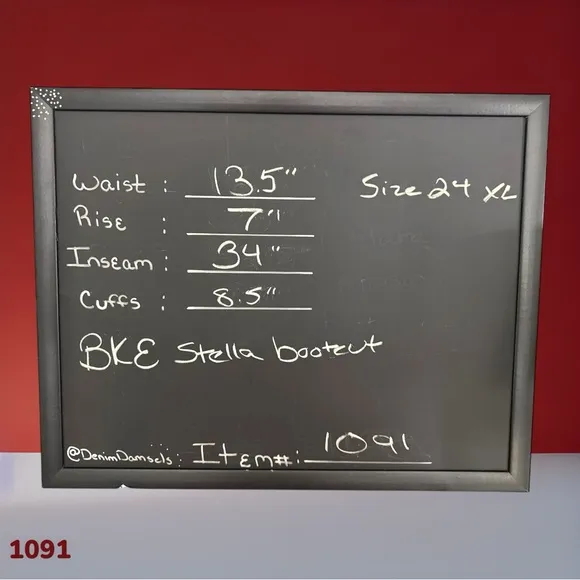 Waist : 13.5" Size 24 XL
Rise : 7"
Inseam : 34"
Cuffs : 8.5"
BKE Stella bootcut
@DenimDamsels: Item#: 1091
1091